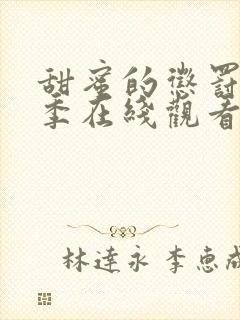 甜蜜的懲罰
季在綫觀看
林達永 李惠成